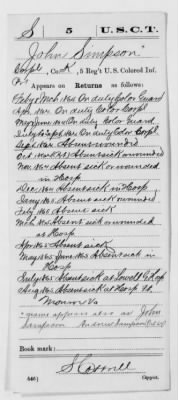 S 5 U.S.C.T.
John Simpson
Corpl, Co. K, 5 Reg't U.S. Colored Inf.
Appears on Returns as follows:
Feby & Mch 1864 On duty Color Guard
Apr. 1864 On duty Color Corpl
May June 1864 On duty Color Guard
1864 On duty Color Corpl
Sept 1864 Absent wounded
Oct 1864 Absent sick or wounded
Nov. 1864 Absent sick or wounded
in Hosp
Dec 1864 Absent sick in Hosp
Jany 1865 Absent sick or wounded
Feby 1865 Absent sick
Mch 1865 Absent sick or wounded
at Hosp
Apr 1865 Absent sick
May 1865 June 1865 Absent sick in
Hosp
July 1865 Absent sick at Hosp
Aug 1865 Absent sick at Hosp Ft.
Monroe Va
* name appears also as John
Sampson Andrew Sampson
Book mark:
(546) Copyist.